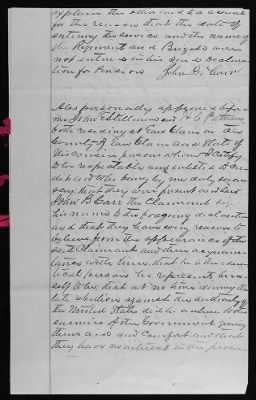 explain the
for the reason that the date of
entering the service and the name of
the Regiment and Brigade were
not entered in his Declara
tion for Pension John B. Carr
Also personally appeared before
me John and
both residing at Eau Claire in the
County of Eau Claire and State of
Wisconsin persons whom I certify
to be respectable and entitled to cre
dit and who being by me duly sworn
say that they were present and saw
John B Carr the Claimant sign
his name to the foregoing declaration
and that they have every reason to
believe from the appearance of the
said Claimant and their acquain
tance with him that he is the iden
tical person he represents him
self to be, that at no time during the
late rebellion against the authority of
the United States did he adhere to the
enemies of the Government giving
them aid and comfort and that
they have no interest in the